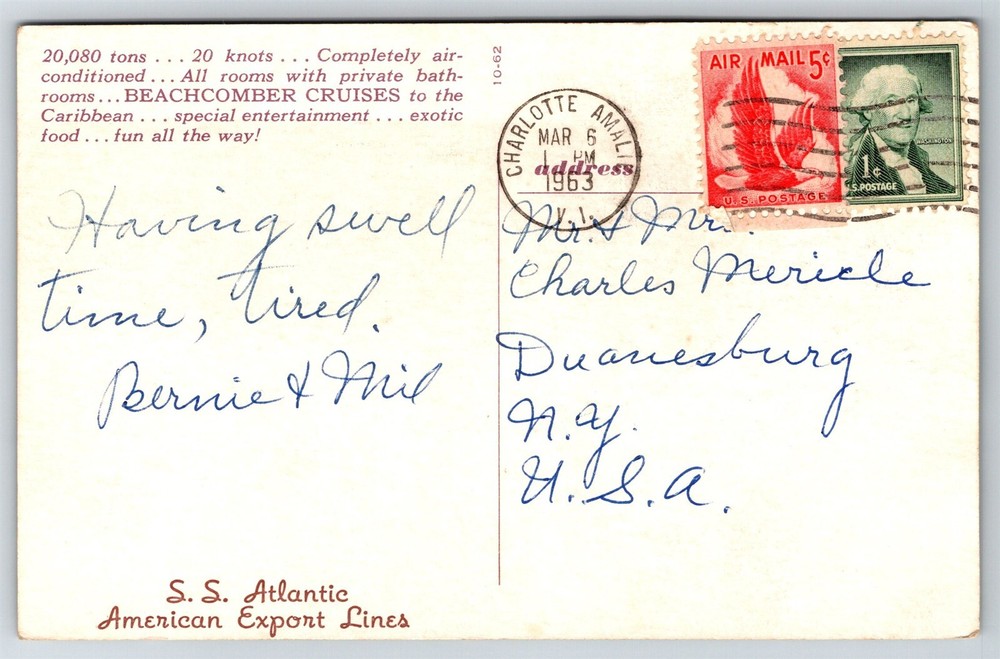 20,080 tons . . . 20 knots . . . Completely air-
conditioned . . . All rooms with private bath-
rooms . . . BEACHCOMBER CRUISES to the
Caribbean . . . special entertainment . . . exotic
food . . . fun all the way!
10-62
CHARLOTTE AMALI
MAR 6
1 PM
1963
V.I.
AIR MAIL 5¢
U.S. POSTAGE
WASHINGTON
1¢
U.S. POSTAGE
address
Having swell
time, tired.
Bernie & Mil
Mr. & Mrs.
Charles Mericle
Duanesburg
N.Y.
U.S.A.
S. S. Atlantic
American Export Lines